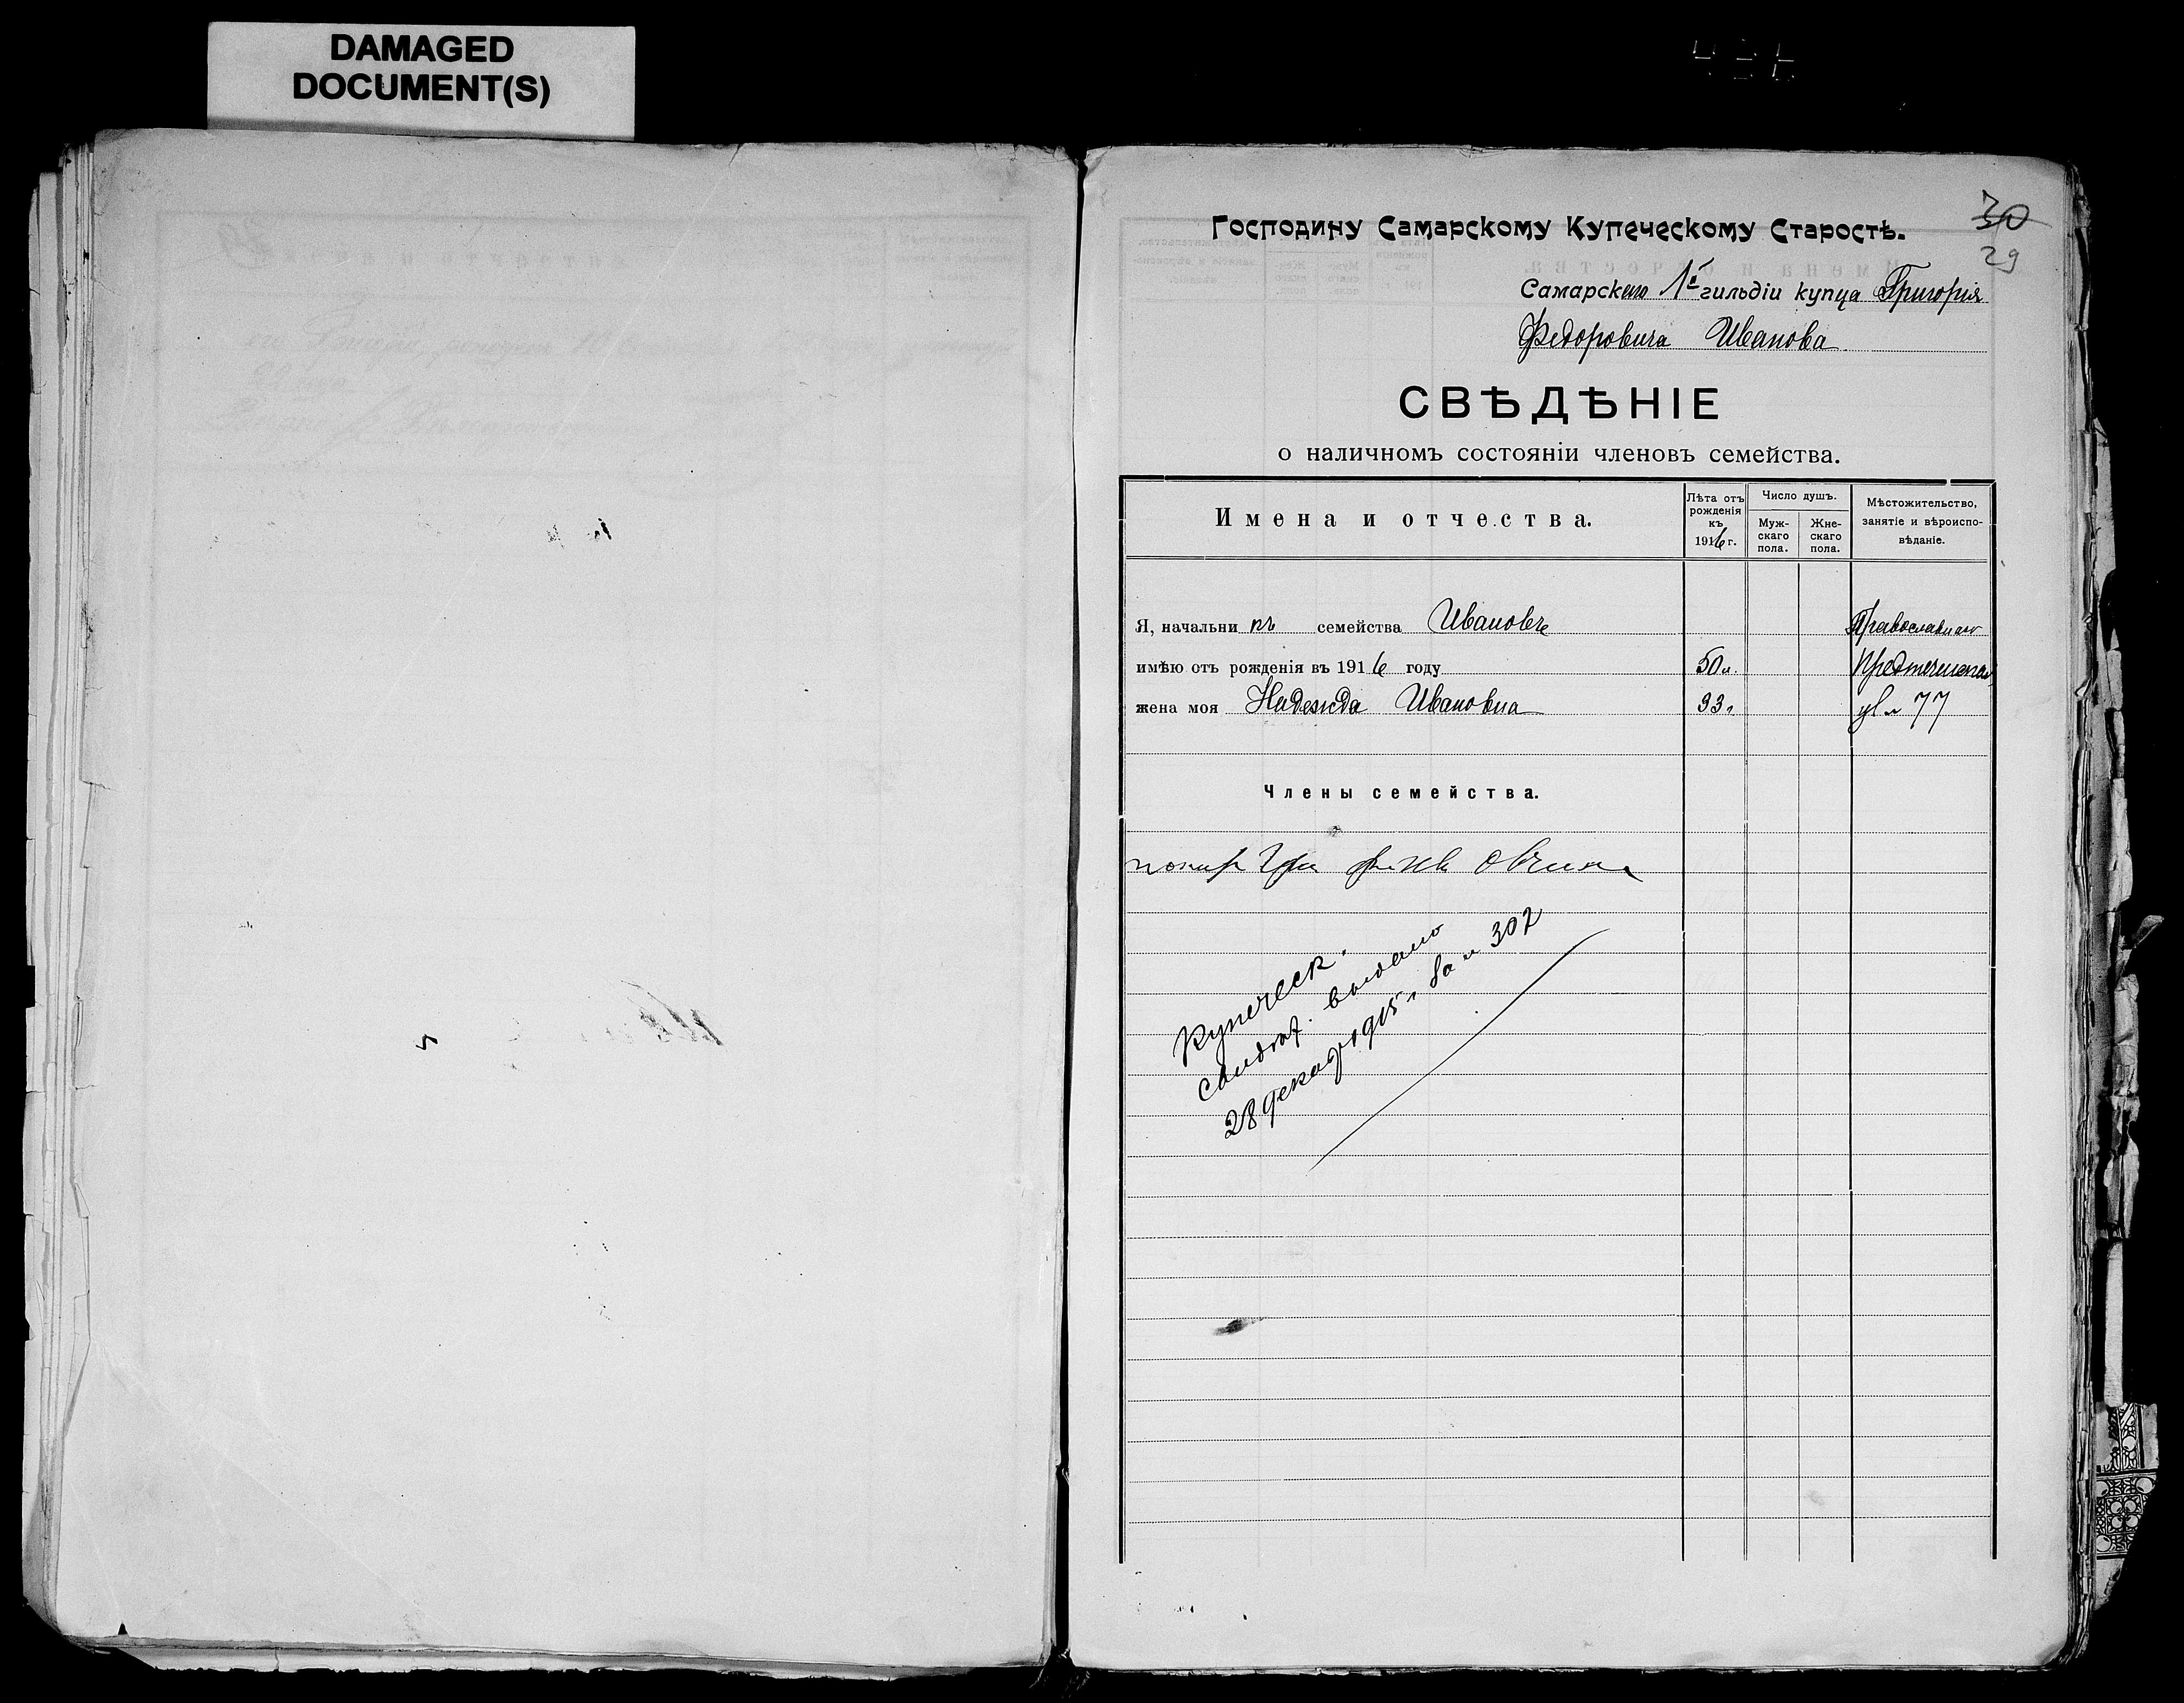 DAMAGED
DOCUMENT(S)
30
29
Господину Самарскому Купеческому Старостѣ.
Самарскаго 1й гильдіи купца Григорія
Федоровича Иванова
СВѢДѢНІЕ
о наличномъ состояніи членовъ семейства.
Имена и отчества.
Лѣта отъ рожденія къ 1916 г.
Число душъ.
Муж-скаго пола.
Жне-скаго пола.
Мѣстожительство, занятіе и вѣроиспо-вѣданіе.
Я, начальникъ семейства Ивановъ Православнаго
имѣю отъ рожденія въ 1916 году 50 л. Предтеченская
жена моя Надежда Ивановна 33 г. ул 77
Члены семейства.
Купеческ.
выдано
28 декабр 1915 г. за № 302